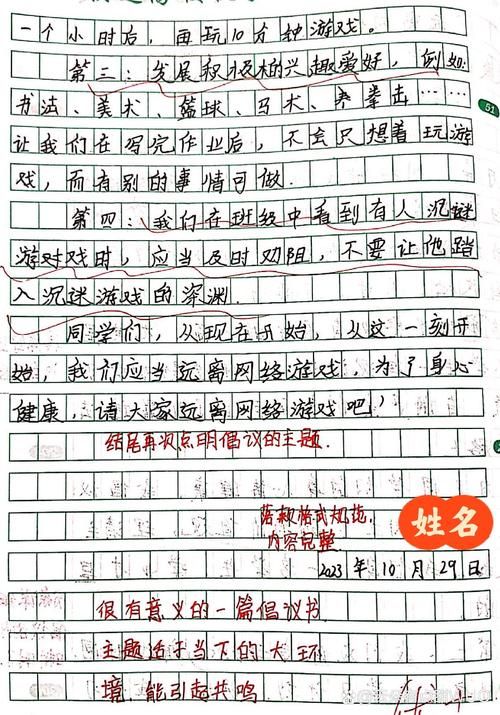 一个小时后，再玩10分钟游戏。
第三：发展积极的兴趣爱好，例如：
书法、美术、篮球、马术、拳击……
让我们在写完作业后，不会只想着玩游
戏，而有别的事情可做.
第四：我们在班级中看到有人沉谜
游对戏时，应当及时劝阻，不要让他踏
入沉迷游戏的深渊.
同学们，从现在开始，从这一刻开
始，我们应当远离网络游戏，为了身心
健康，请大家远离网络游戏吧！
结尾再次点明倡议的主题.
落款格式规范,
内容完整
姓名
2023年10月29日
很有意义的一篇倡议书
主题适于当下的大环
境,能引起共鸣
51